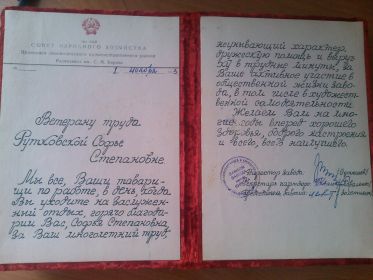 СОВЕТ НАРОДНОГО ХОЗЯЙСТВА
Ветерану труда
Рутковской Софье
Степановне
Мы все, Ваши товари-
щи по работе, в день, когда
Вы уходите на заслужен-
ный отдых, горячо благода-
рим Вас, Софья Степановна,
за Ваш многолетний труд,
неунывающий характер,
дружескую помощь и выруч-
ку в трудные минуты, за
Ваше активное участие в
общественной жизни заво-
да, в том числе в художест-
венной самодеятельности.
Желаем Вам на мно-
гие годы вперед хорошего
здоровья, доброго настроения
и всего, всего наилучшего.
Директор завода
Секретарь парторг.